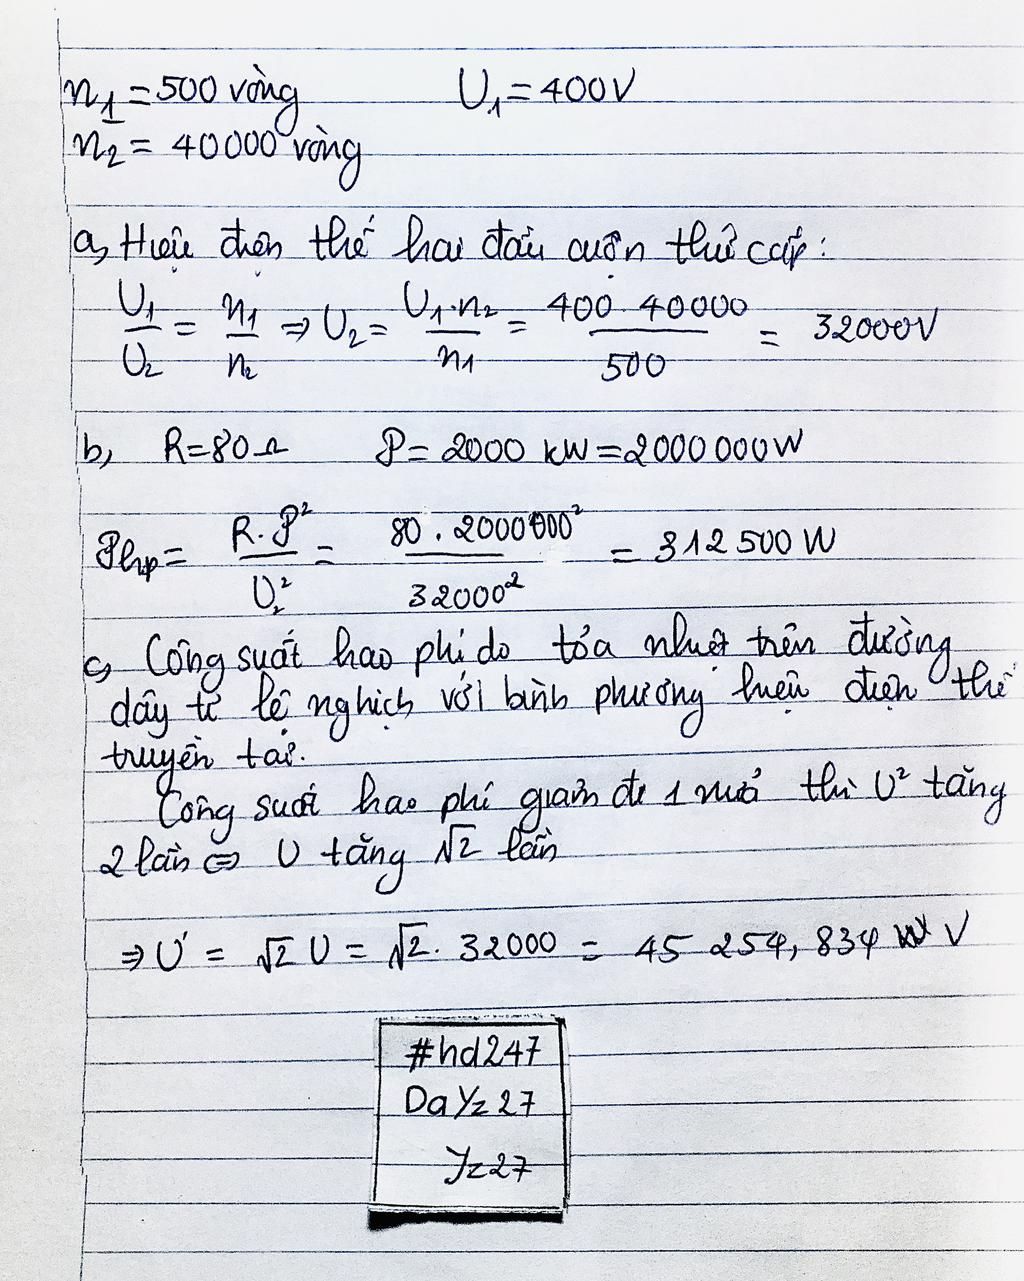 n₁ = 500 vòng U₁ = 400V
n₂ = 40000 vòng
a, Hiệu điện thế hai đầu cuộn thứ cấp:
U₁/U₂ = n₁/n₂ ⇒ U₂ = U₁.n₂/n₁ = 400.40000/500 = 32000V
b, R = 80Ω P = 2000 kW = 2000 000W
Php = R.P²/U₂² = 80.2000000²/32000² = 312 500 W
c, Công suất hao phí do tỏa nhiệt trên đường
dây tỉ lệ nghịch với bình phương hiệu điện thế
truyền tải.
Công suất hao phí giảm đi 1 nửa thì U² tăng
2 lần ⇔ U tăng √2 lần
⇒ U' = √2 U = √2. 32000 = 45 254,834 V
#hd247
DaYz27
Yz27